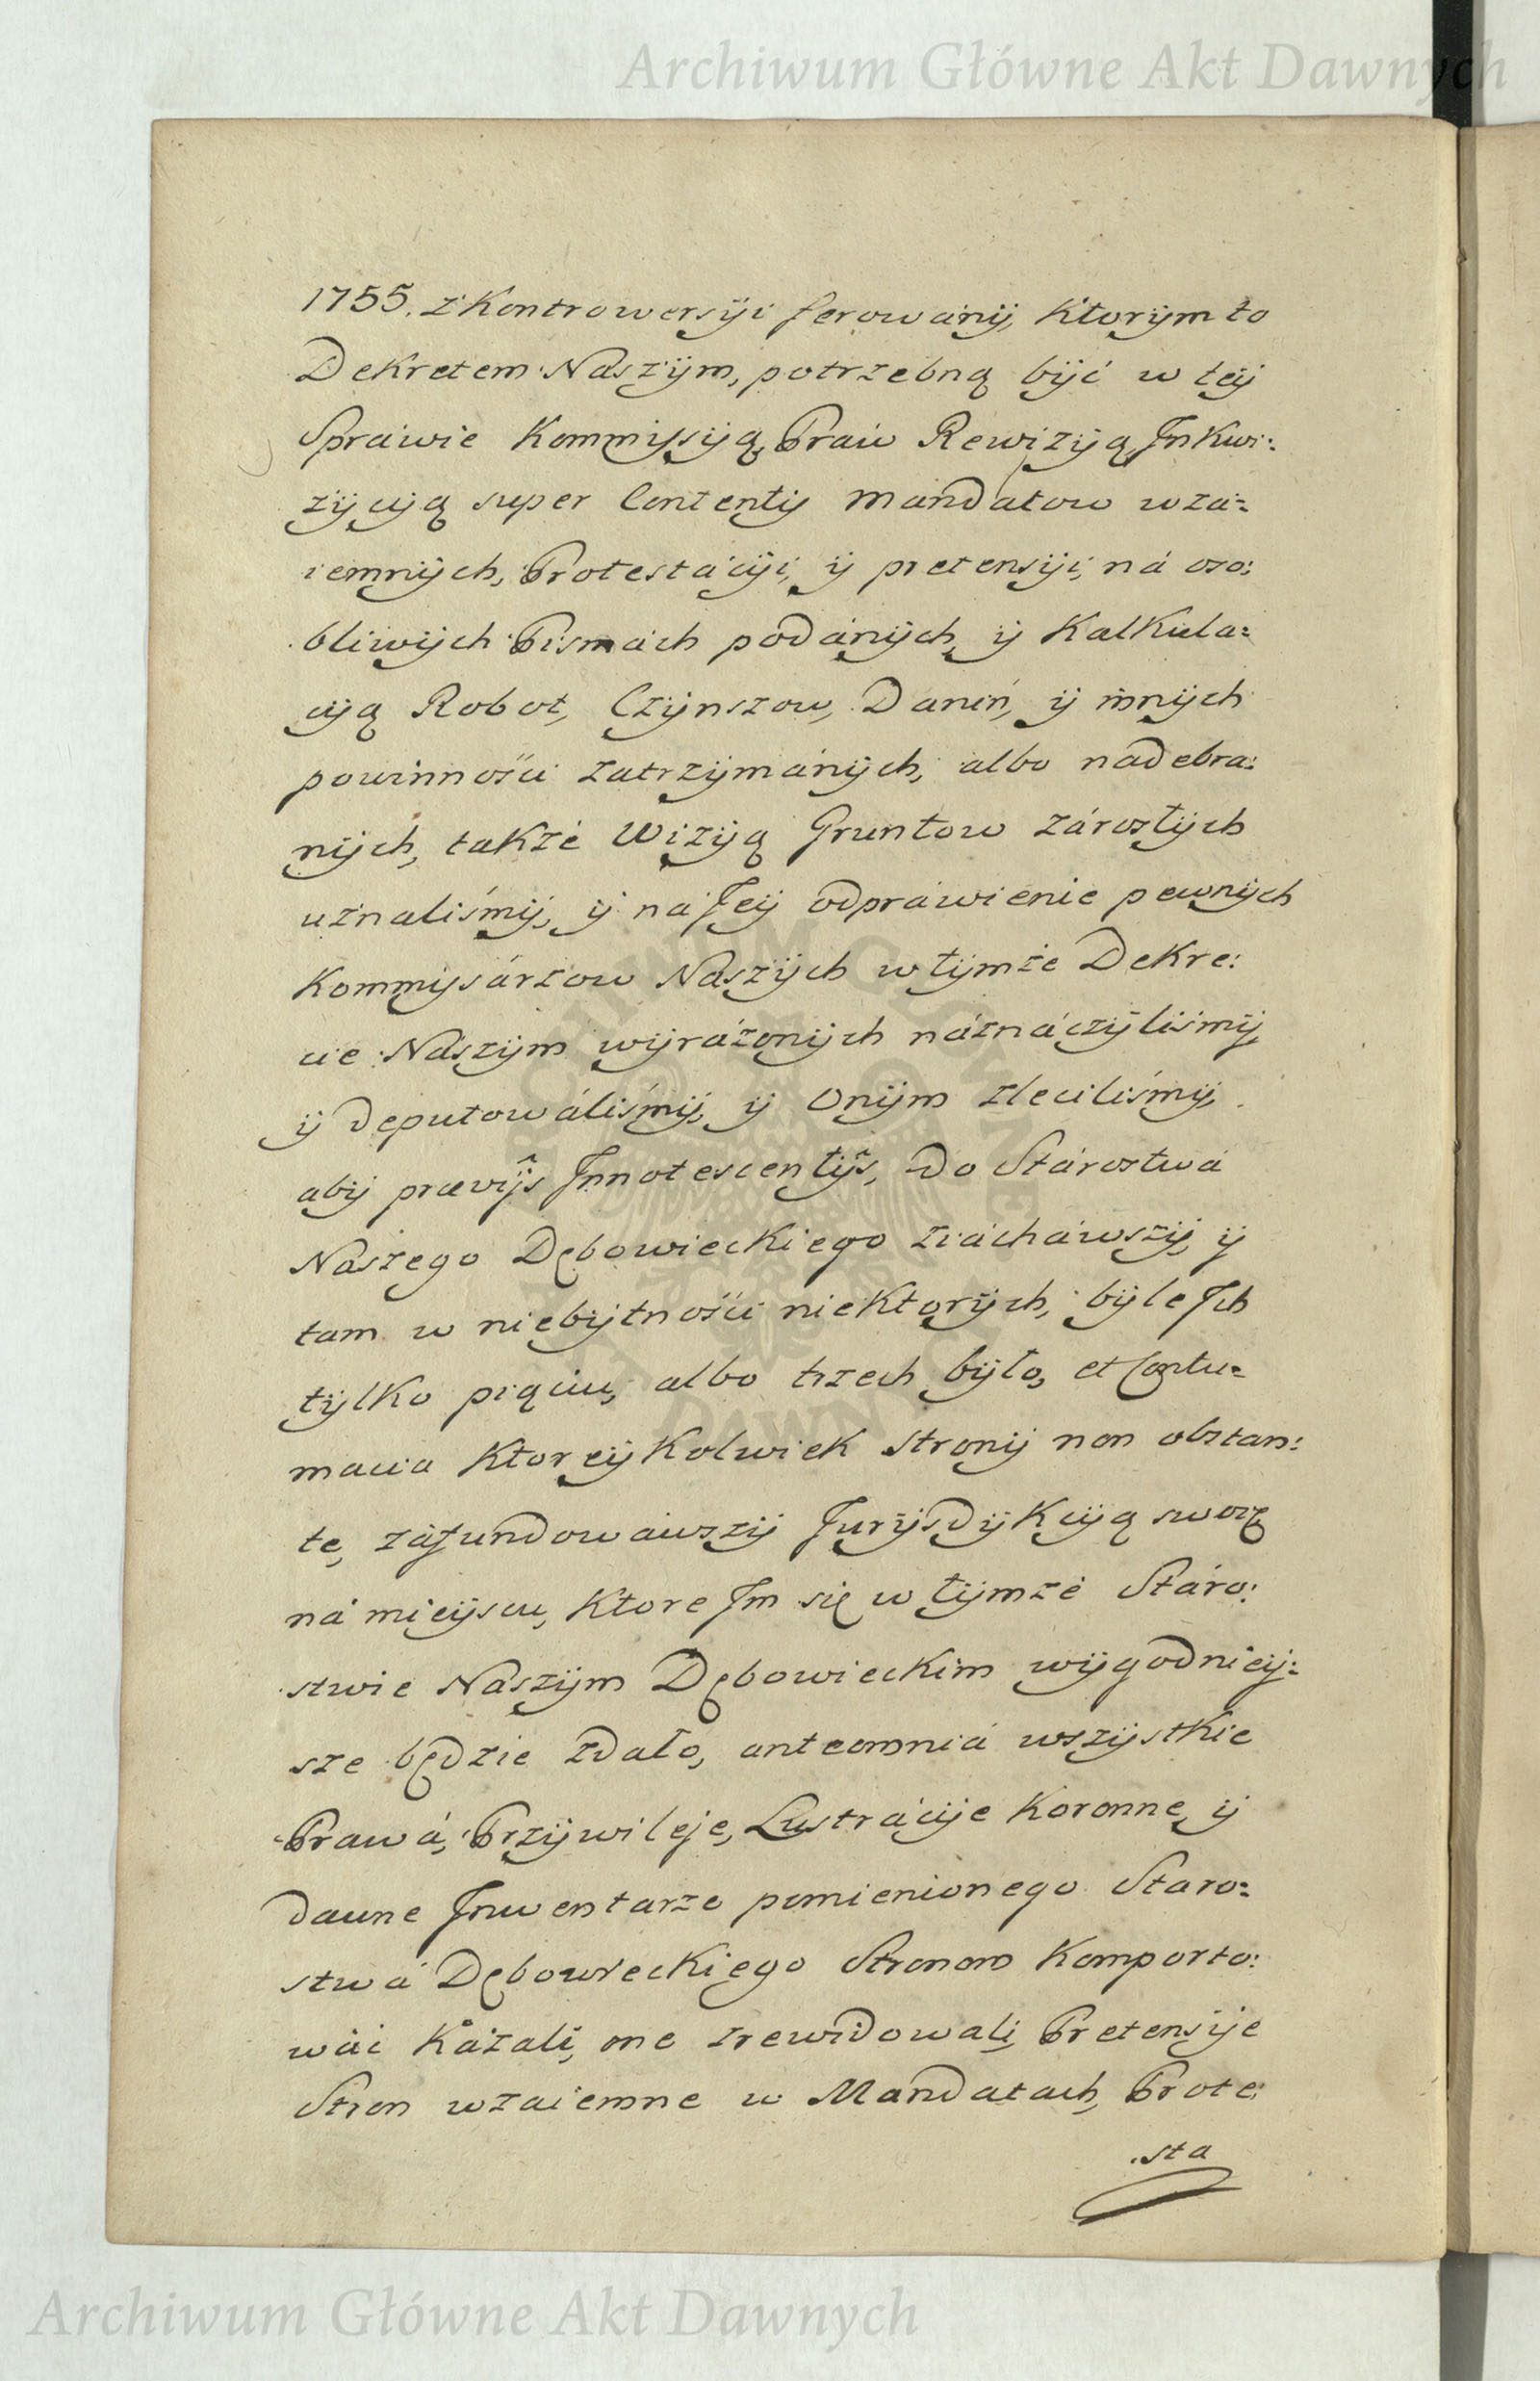 Archiwum Główne Akt Dawnych
1755. z Kontrowersÿi ferowanÿ, Ktorÿm to
Dekretem Naszÿm, potrzebną bÿić w teÿ
Spráwie Kommissÿą, Praw Rewizÿą, Inkwi:
zÿcÿą super Contentis Mandatow wza:
iemnÿch, Protestácÿi, ÿ pretensÿi, ná oso:
bliwÿch Pismách podánÿch, ÿ Kalkula:
cÿą Robot, Czÿnszow, Danin, ÿ innÿch
powinności zatrzÿmánÿch, albo nadebra:
nÿch, także Wizÿą Gruntow zárosłÿch
uznaliśmÿ, ÿ na Jeÿ odpráwienie pewnÿch
Kommisárzow Naszÿch w tÿmże Dekre:
cie Naszÿm wÿráżonÿch náznáczÿliśmÿ,
ÿ deputowáliśmÿ, ÿ onÿm zleciliśmÿ,
abÿ prævÿs Innotescentÿs, do Stárostwá
Naszego Dębowieckiego ziácháwszÿ, ÿ
tam w niebÿtności niektorÿch, bÿle Ich
tÿlko pięciu, albo trzech bÿło, et Contu:
macia Ktoreÿkolwiek Stronÿ non obstan:
te, záfundowáwszÿ Jurÿsdÿkcÿą swoię
ná mieÿscu, Ktore Im się w tÿmże Stáro:
stwie Naszÿm Dębowieckim wÿgodnieÿ:
sze będzie zdało, anteomniá wszÿstkie
Prawá, Przÿwileje, Lustrácÿe Koronne, ÿ
dawne Inwentarze pomienionego Staro:
stwá Dębowieckiego Stronom Komporto:
wáć Kázali, one zrewidowali, Pretensÿe
Stron wzaiemne w Mandatach, Prote:
sta
Archiwum Główne Akt Dawnych